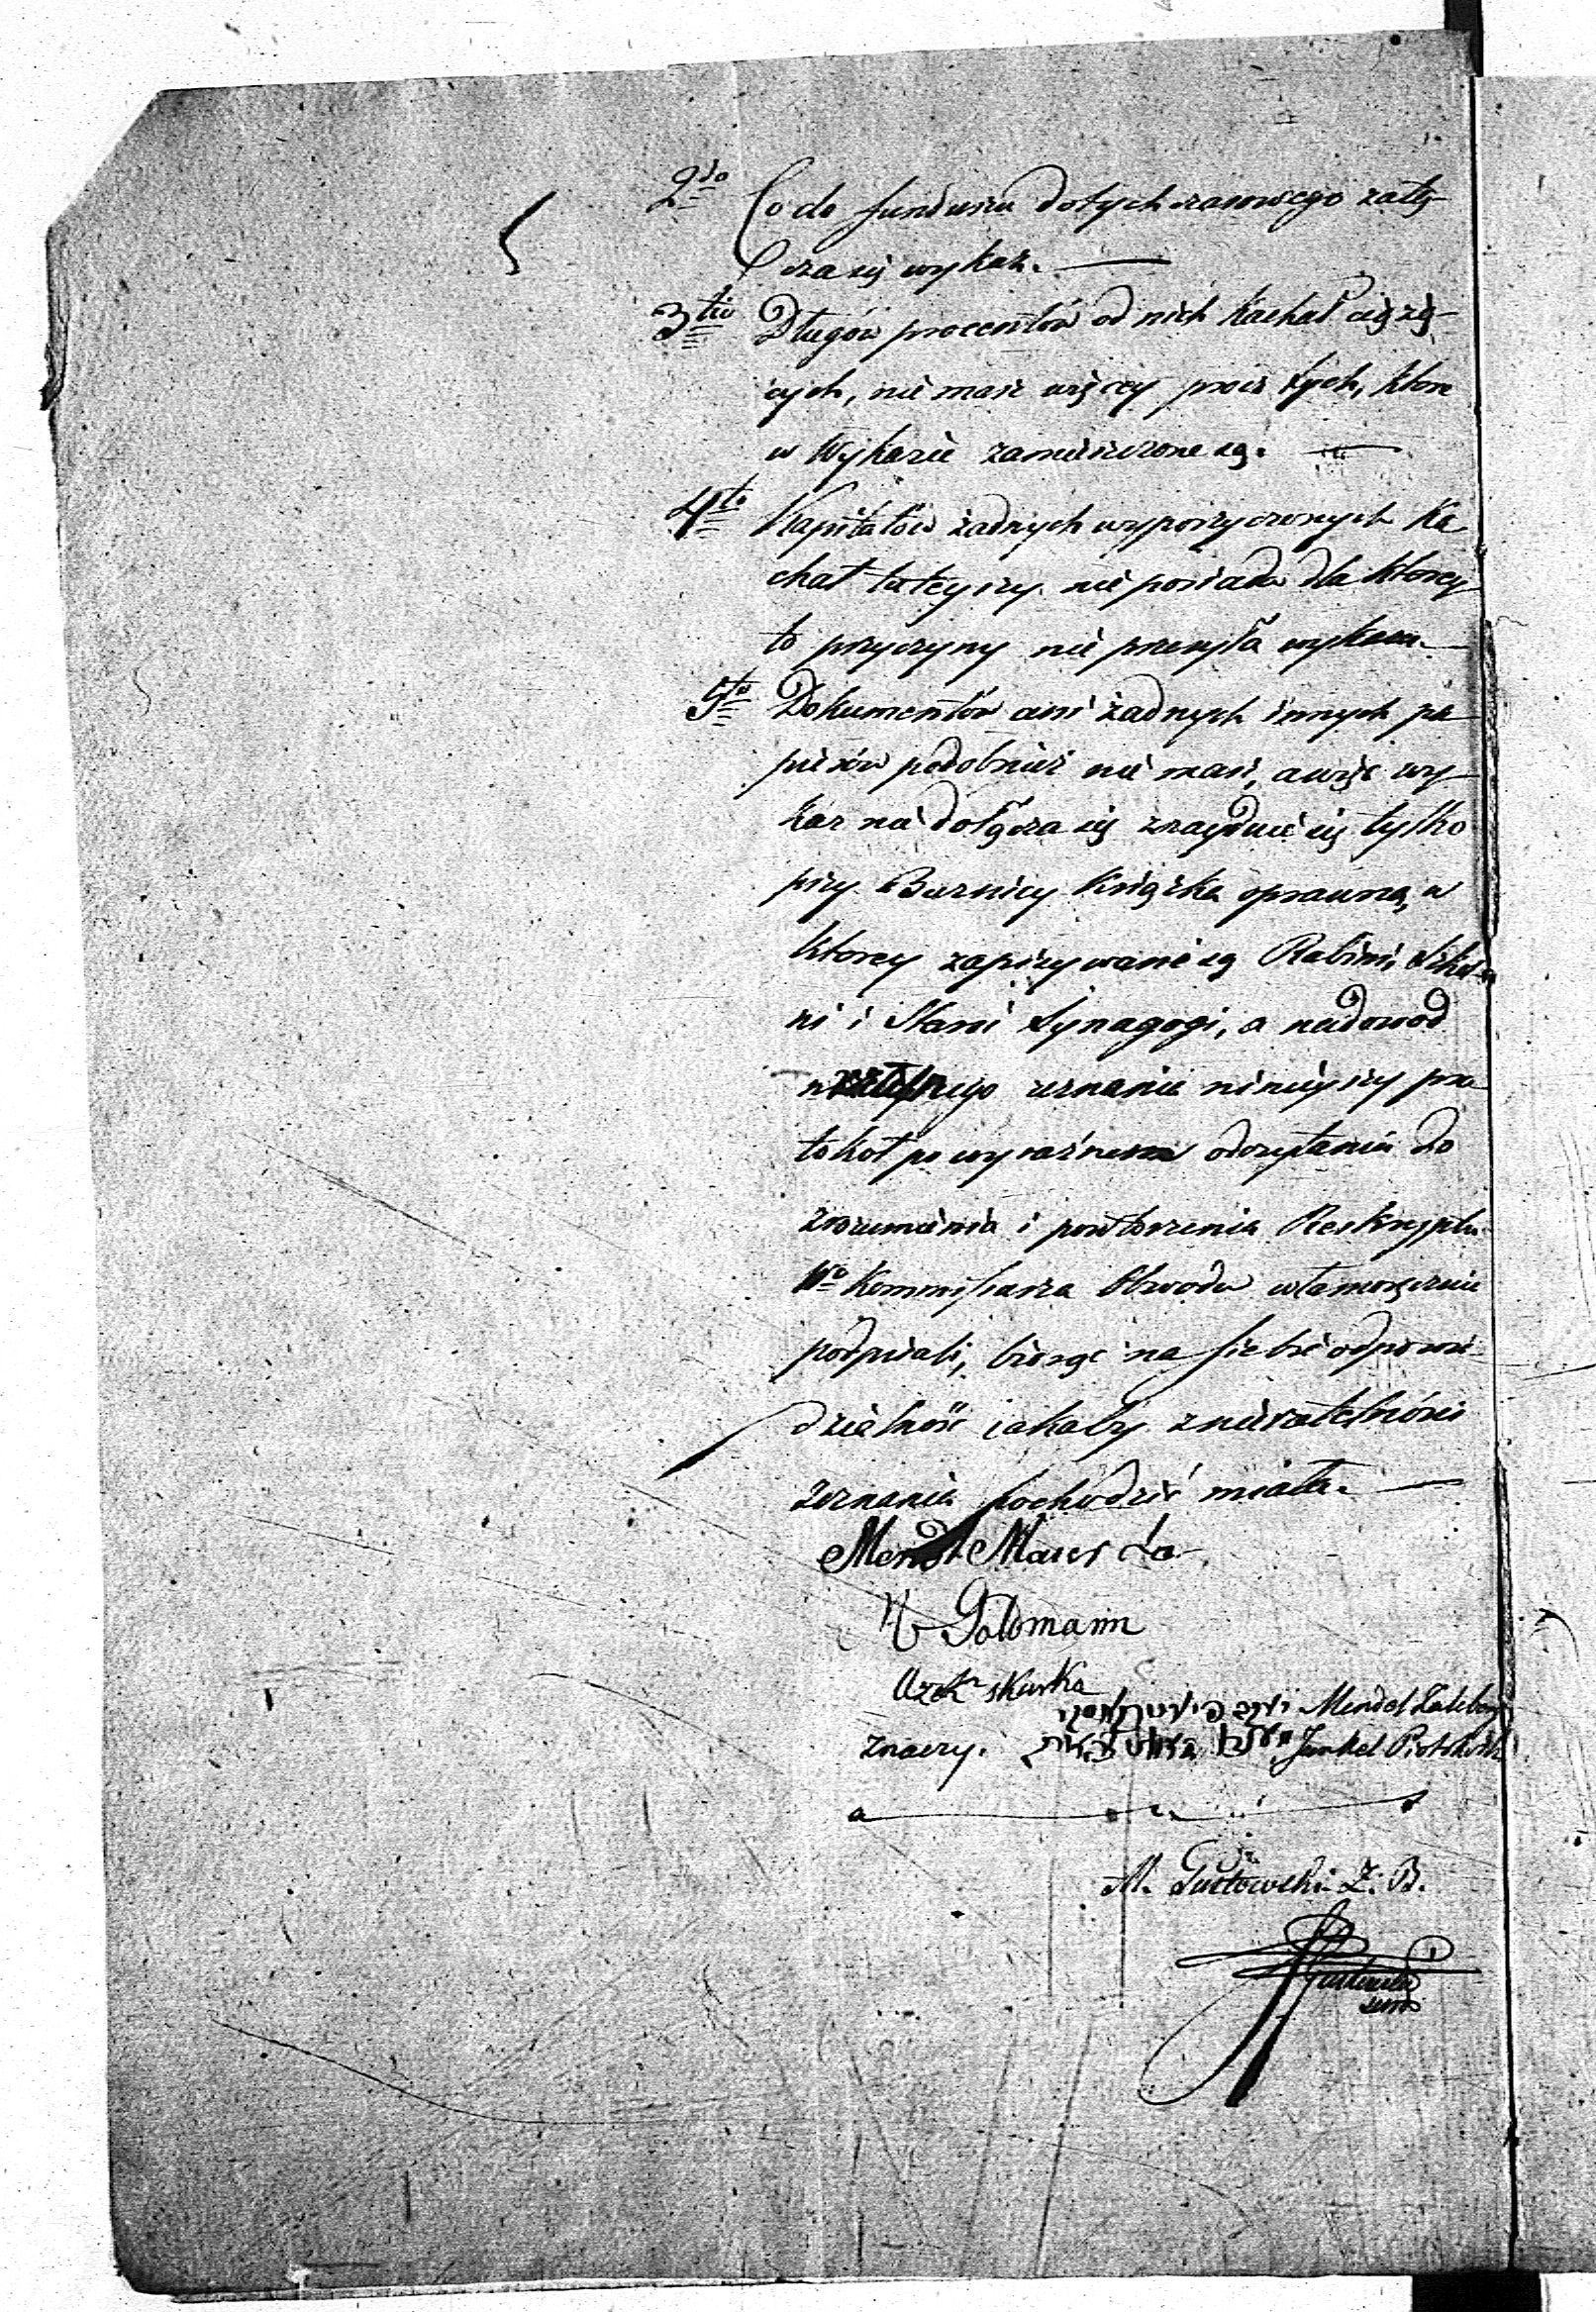 2do Co do funduszu dotychczasowego załą-
cza się wykaz. —
3tio Długów procentów od nich Kachał ciążą-
cych, nie masz więcey prócz tych, które
w Wykazie zamieszczone są. —
4to Kapitałów żadnych wypożyczonych Ka-
chał tuteyszy nie posiada dla którey
to przyczyny nie przesyła wykazu. —
5to Dokumentów ani żadnych innych pa-
pierów podobnież nie masz, a więc wy-
kaz nie dołącza się znayduie się tylko
przy Bożnicy Książka oprawna, w
którey zapisywani są Rabini, Szkol-
ni i Starsi Synagogi, a na dowód
rzetelnego zeznania ninieyszy pro-
tokół po wyraźnem odczytaniu do
zrozumienia i powtórzenia Reskryptu
Wo Kommissarza Obwodu własnoręcznie
podpisali, biorąc na siebie odpowie-
dzialność iakaby z nierzetelności
zeznania pochodzić miała. —
Mendl Maier
Goldmann
Skurka
Mendel
znaczy. Jankel
M. Gutowski Z. B.